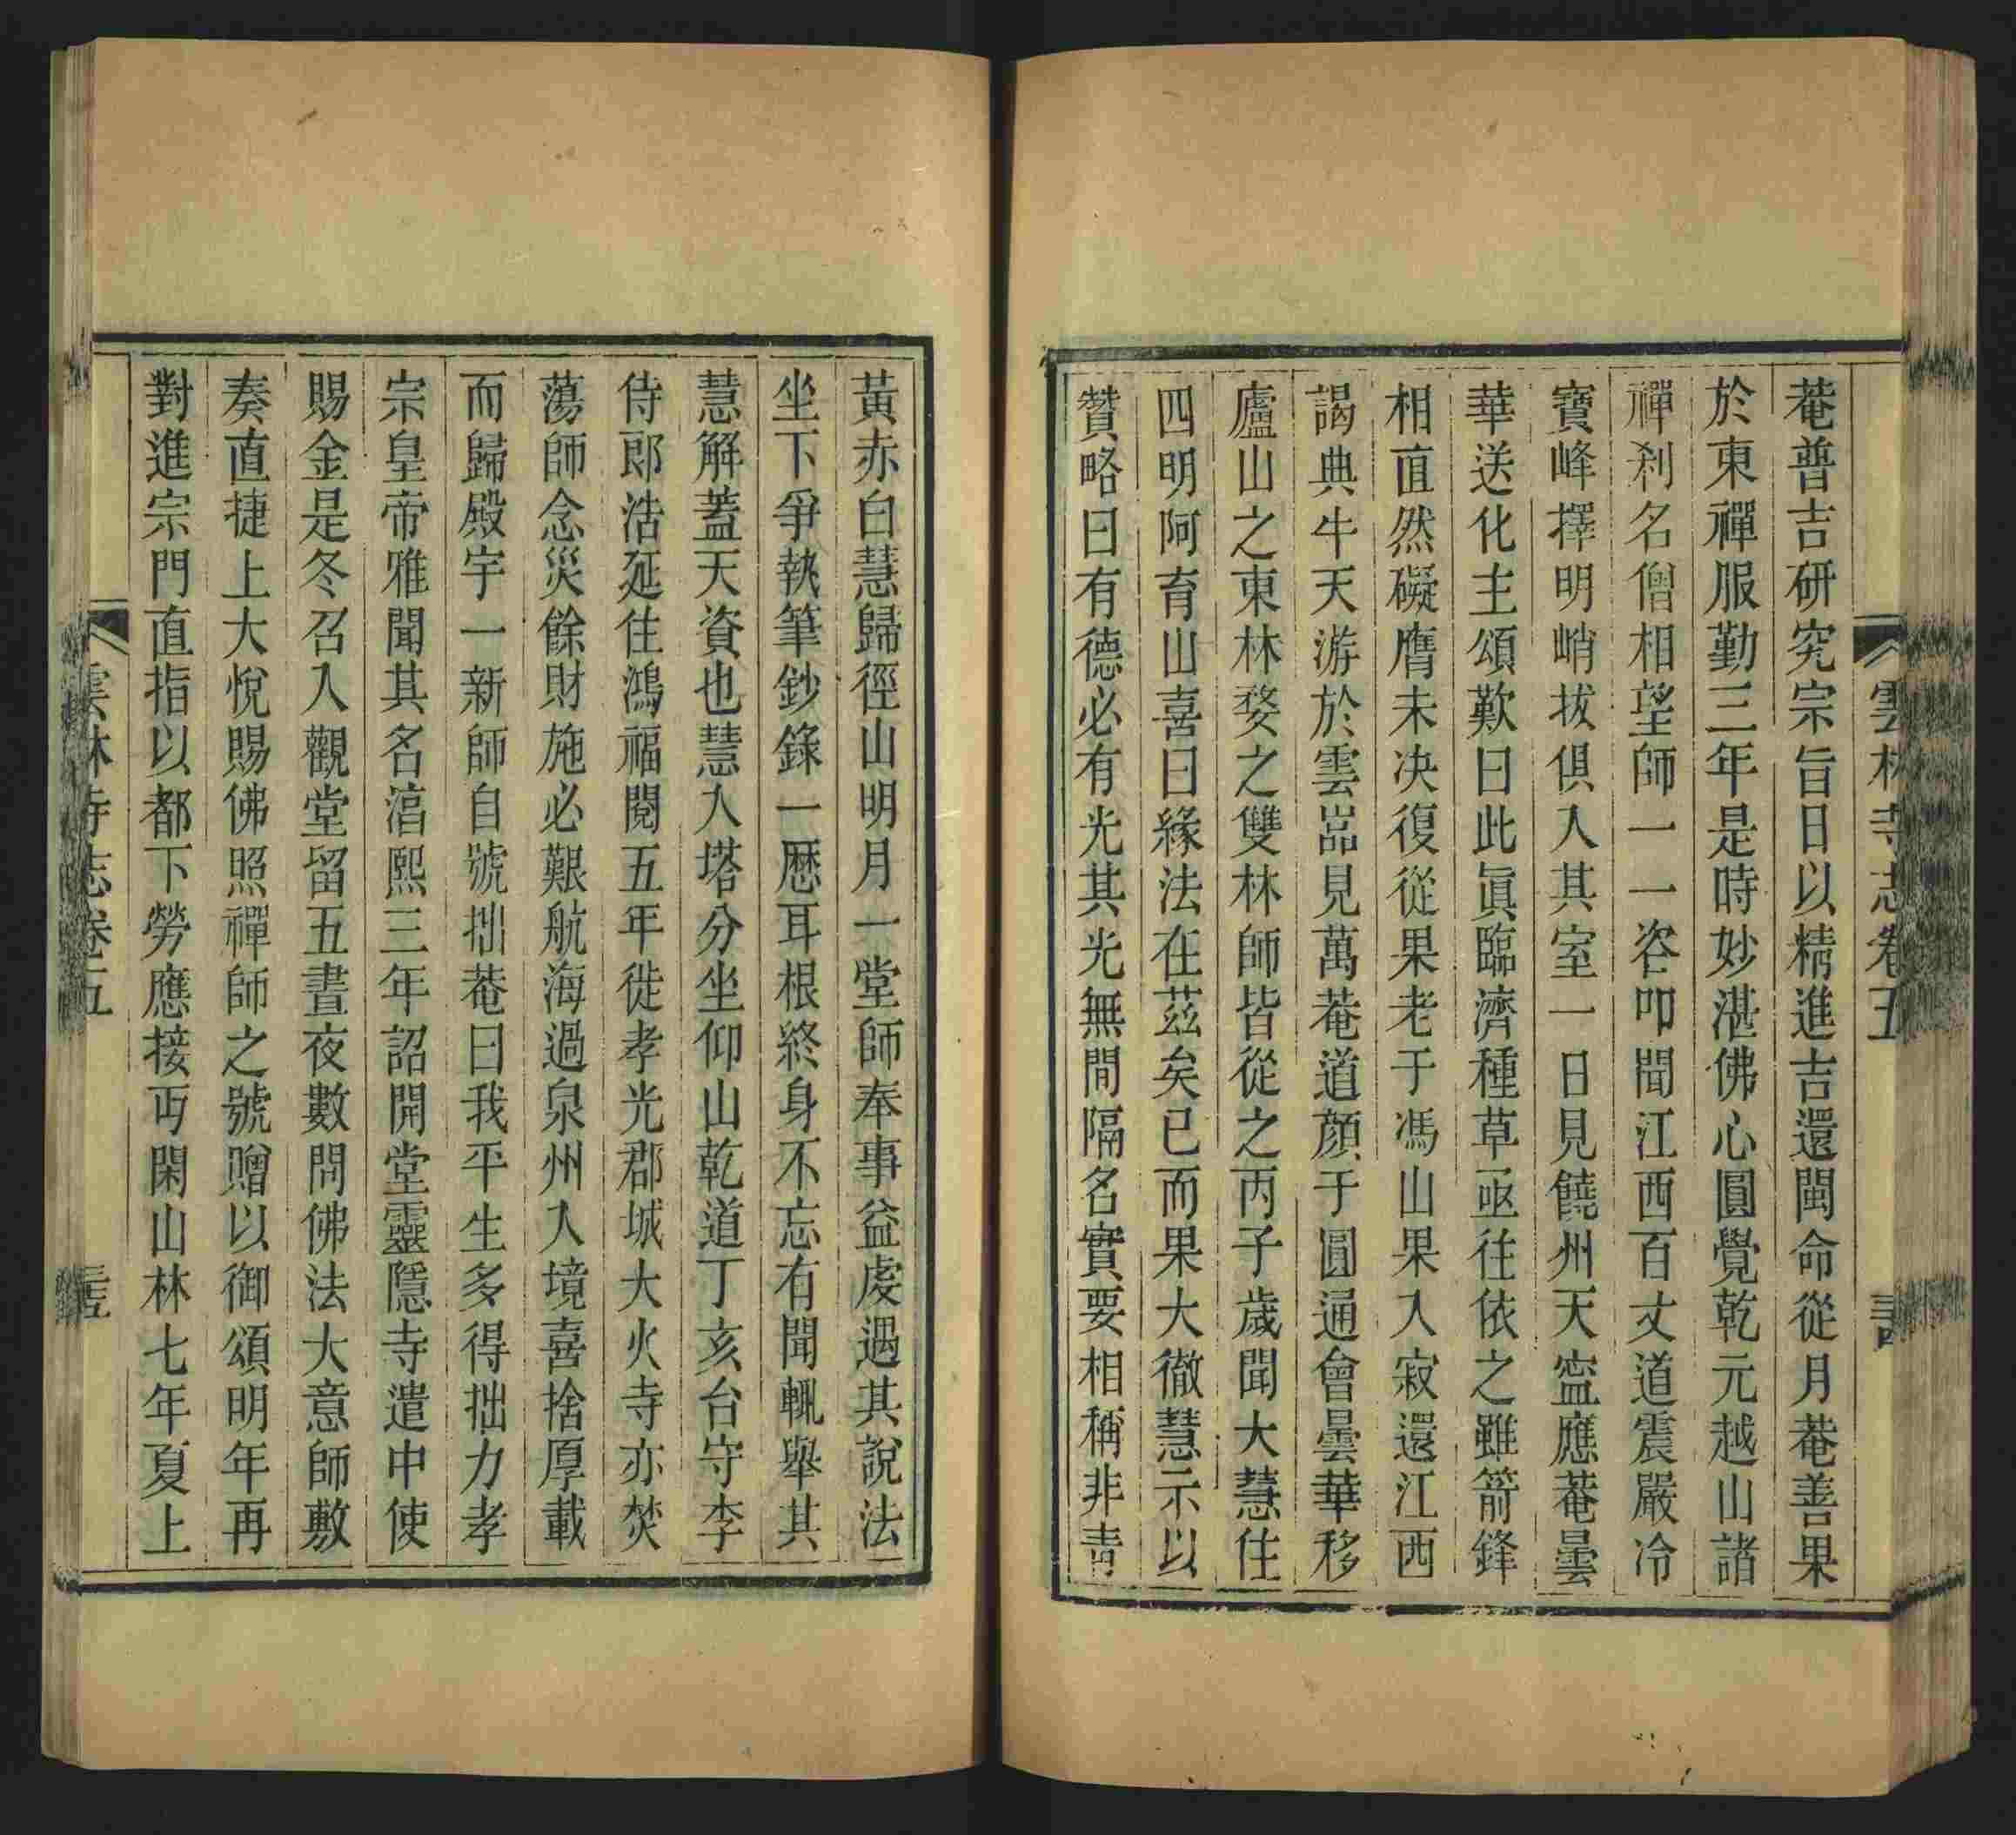 雲林寺志卷五
菴普吉研究宗旨日以精進吉還閩命從月菴善果
於東禪服勤三年是時妙湛佛心圓覺乾元越山諸
禪刹名僧相望師一一咨叩聞江西百丈道震嚴冷
寶峰擇明峭拔俱入其室一日見饒州天寍應菴曇
華送化主頌歎曰此眞臨濟種草亟往依之雖箭鋒
相直然礙膺未决復從果老于馮山果入寂還江西
謁典牛天游於雲嵓見萬菴道顔于圓通會曇華移
廬山之東林婺之雙林師皆從之丙子歲聞大慧住
四明阿育山喜曰緣法在茲矣已而果大徹慧示以
贊略曰有德必有光其光無間隔名實要相稱非青
黃赤白慧歸徑山明月一堂師奉事益虔遇其說法
坐下爭執筆鈔錄一歷耳根終身不忘有聞輒舉其
慧解蓋天資也慧入塔分坐仰山乾道丁亥台守李
侍郎浩延住鴻福閱五年徙孝光郡城大火寺亦焚
蕩師念災餘財施必艱航海過泉州人境喜捨厚載
而歸殿宇一新師自號拙菴曰我平生多得拙力孝
宗皇帝雅聞其名湻熙三年詔開堂靈隱寺遣中使
賜金是冬召入觀堂留五晝夜數問佛法大意師敷
奏直捷上大悅賜佛照禪師之號贈以御頌明年再
對進宗門直指以都下勞應接丐閑山林七年夏上
雲林寺志卷五